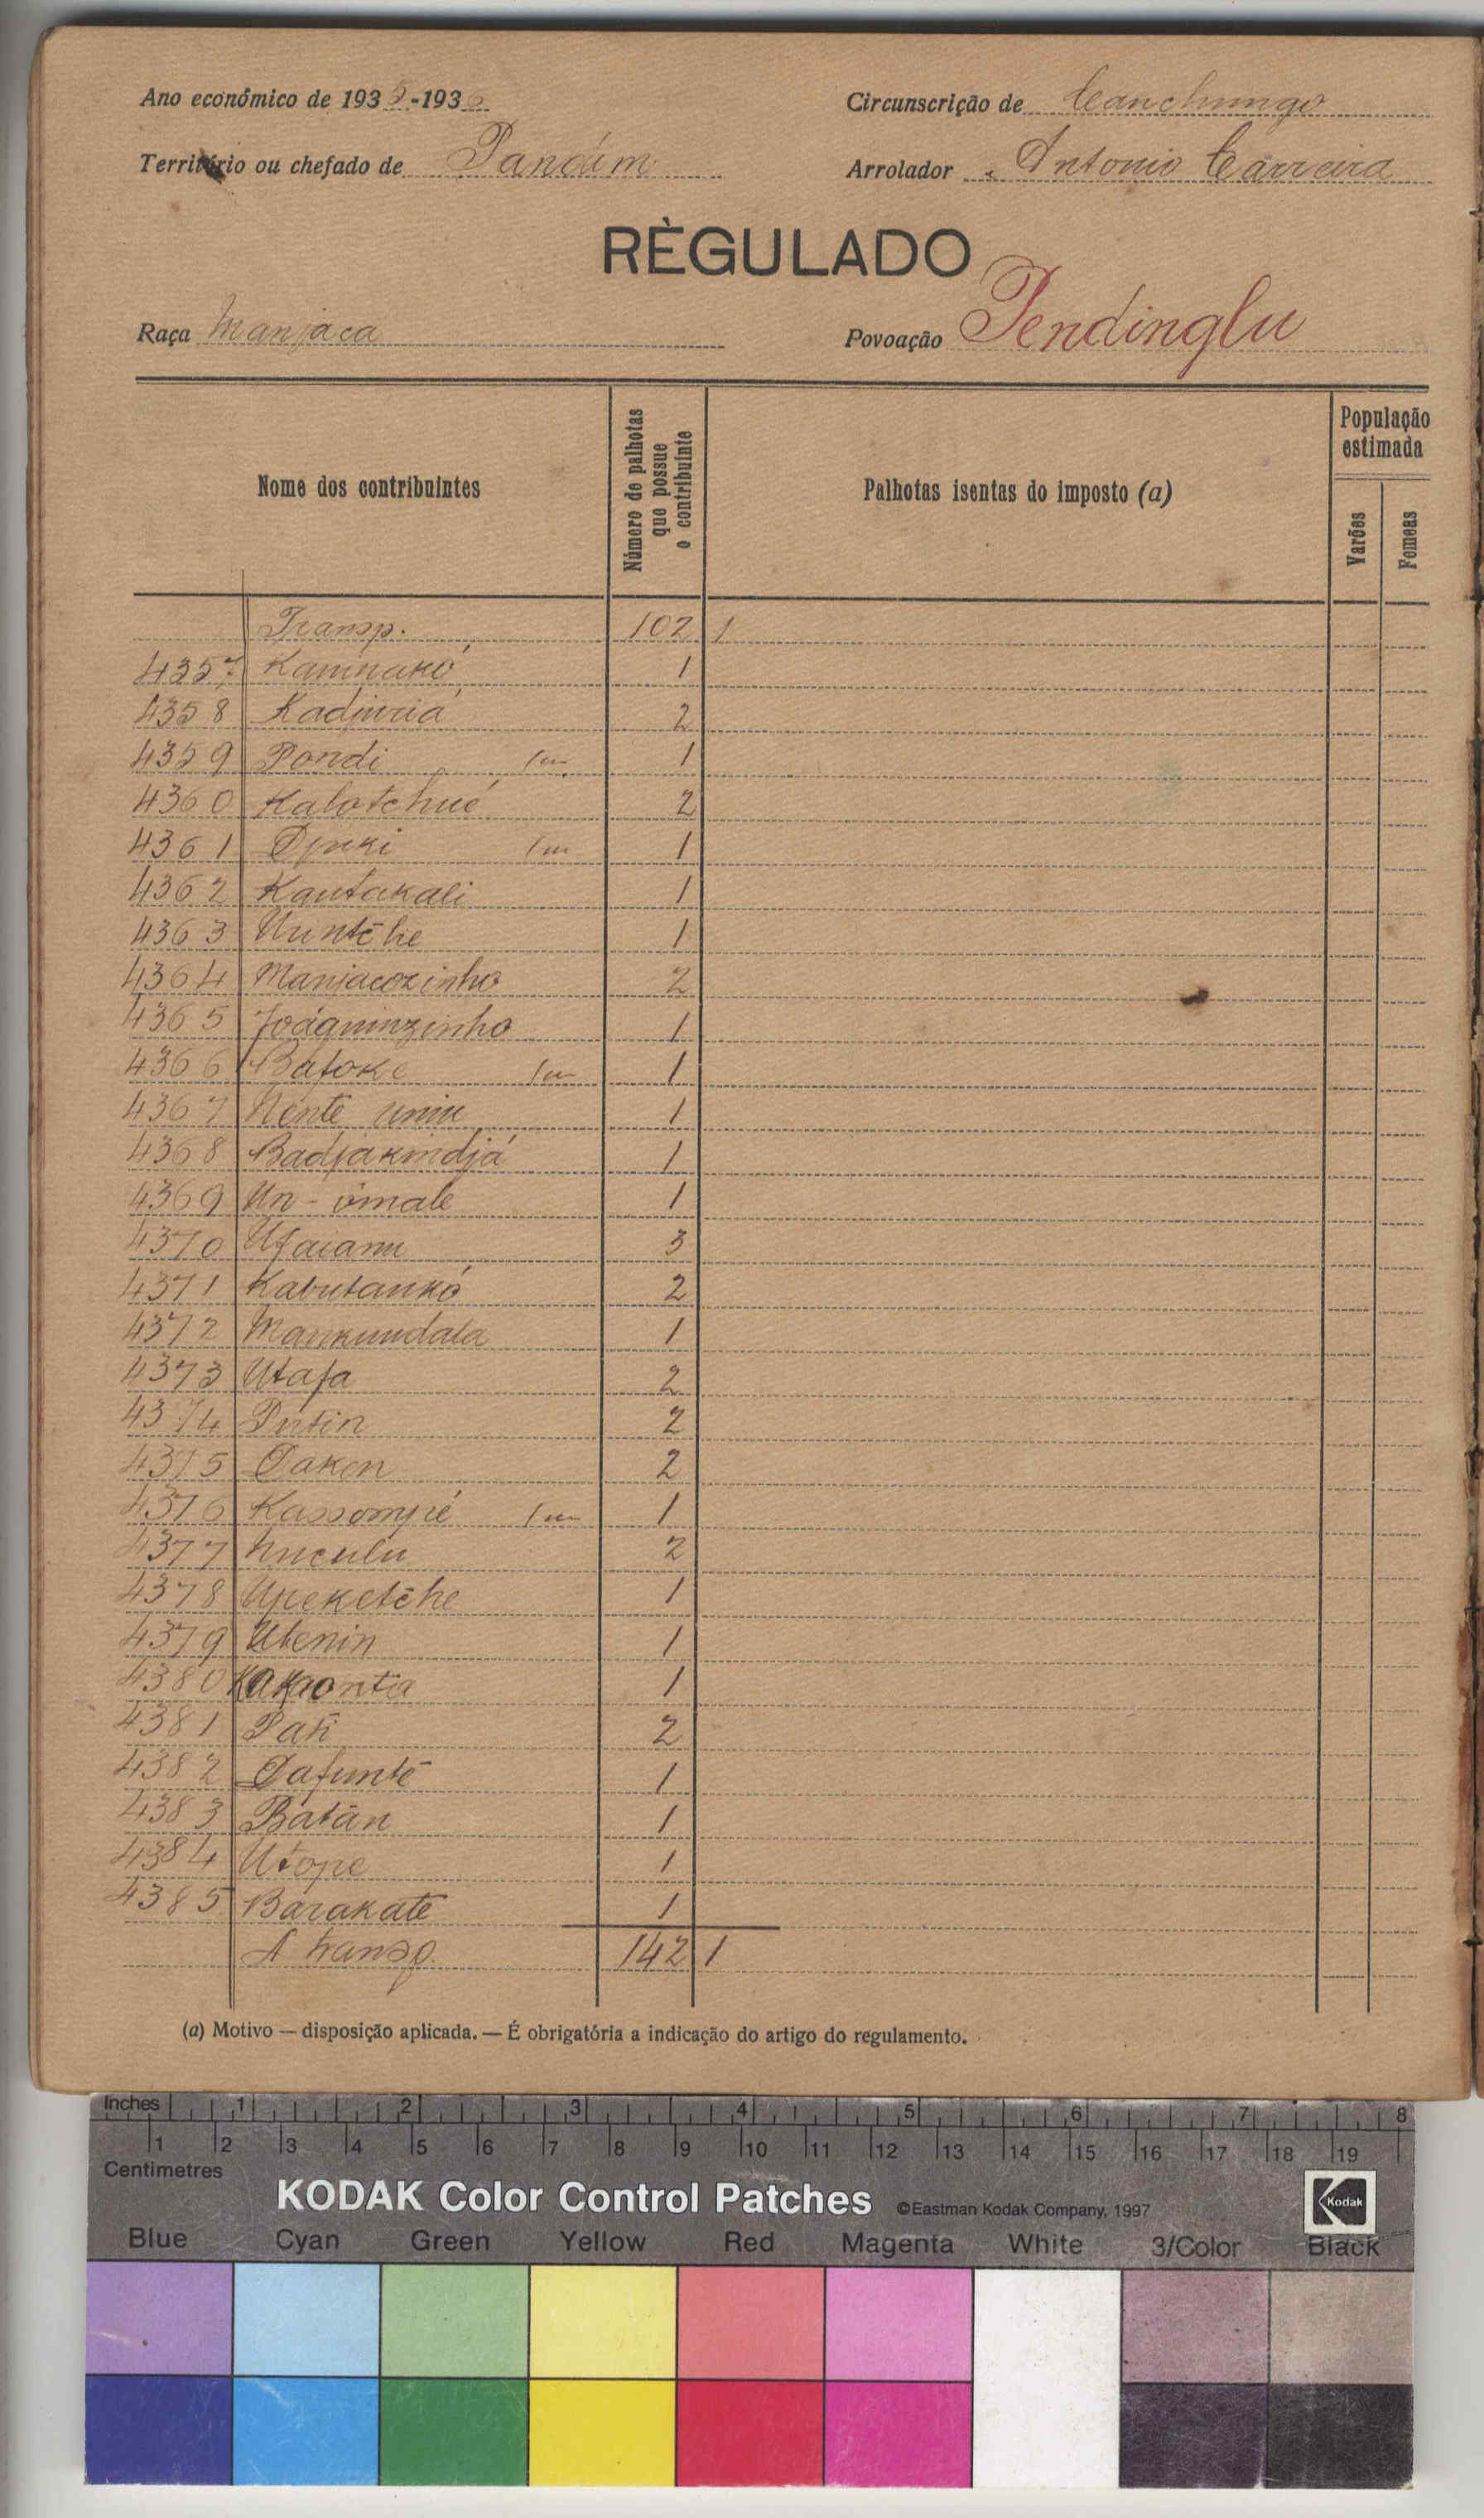 Ano económico de 1935-1936 Circunscrição de Canchungo
Território ou chefado de Pandim Arrolador Antonio Carreira
RÈGULADO
Raça Manjaca Povoação Pendinglu
Nome dos contribuintes
Número de palhotas que possue o contribuinte
Palhotas isentas do imposto (a)
População estimada
Varões
Femeas
Transp. 102 1
4357 Kaminakó 1
4358 2
4359 Pondi 1m 1
4360 Kalotchué 2
4361 1m 1
4362 Kautakali 1
4363 1
4364 Manjacozinho 2
4365 Joáquinzinho 1
4366 Batoke 1m 1
4367 1
4368 Badjakindjá 1
4369 1
4370 3
4371 Kabutankó 2
4372 Mankundala 1
4373 Utafa 2
4374 Putin 2
4375 Dakon 2
4376 Kassompé 1m 1
4377 2
4378 Upeketche 1
4379 Ubenin 1
4380 1
4381 2
4382 Dafunté 1
4383 Batán 1
4384 Utope 1
4385 Barakate 1
A transp. 142 1
(a) Motivo — disposição aplicada. — É obrigatória a indicação do artigo do regulamento.
Inches 1 2 3 4 5 6 7 8
1 2 3 4 5 6 7 8 9 10 11 12 13 14 15 16 17 18 19
Centimetres
KODAK Color Control Patches ©Eastman Kodak Company, 1997 Kodak
Blue Cyan Green Yellow Red Magenta White 3/Color Black